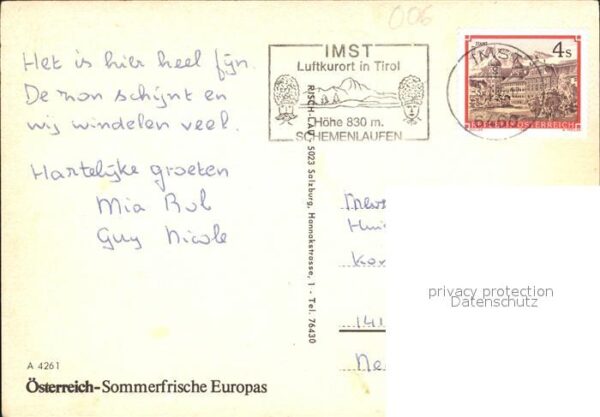 Het is hier heel fijn.
De zon schijnt en
wij wandelen veel.
Hartelijke groeten
Mia Rob
Guy Nicole
A 4261
Österreich-Sommerfrische Europas
RISCH-LAU, 5023 Salzburg, Hannakstrasse, 1 - Tel. 76430
006
IMST
Luftkurort in Tirol
Höhe 830 m.
SCHEMENLAUFEN
4s
IMST
REPUBLIK ÖSTERREICH
Kor
141
privacy protection
Datenschutz